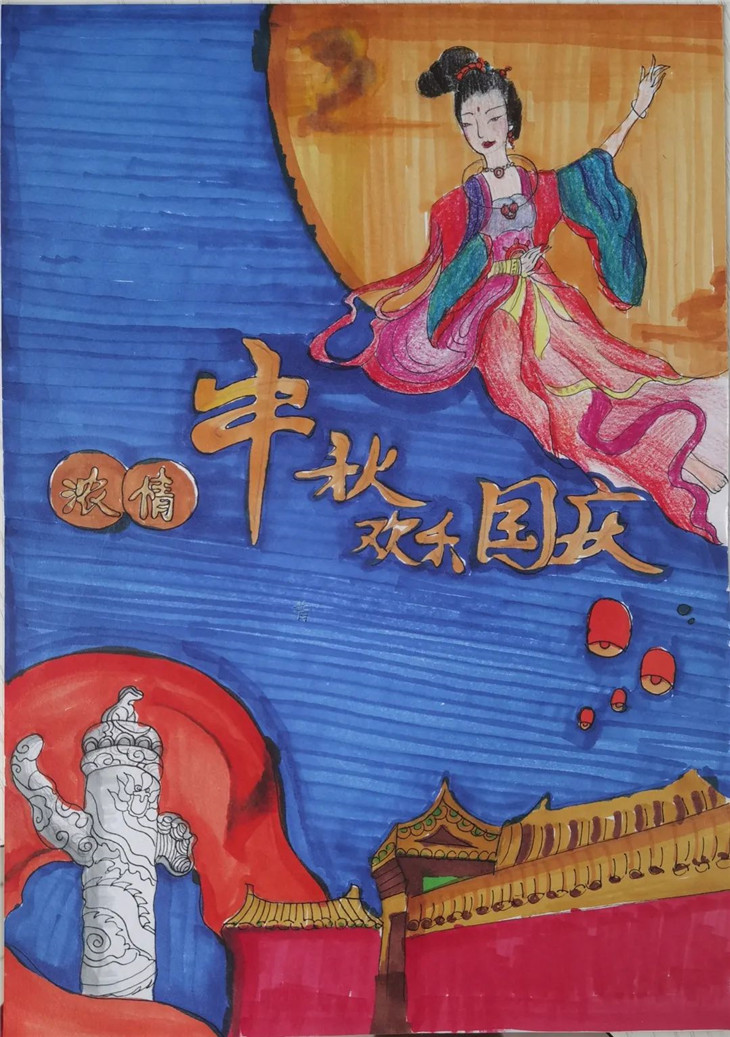 浓情
中秋
欢乐国庆